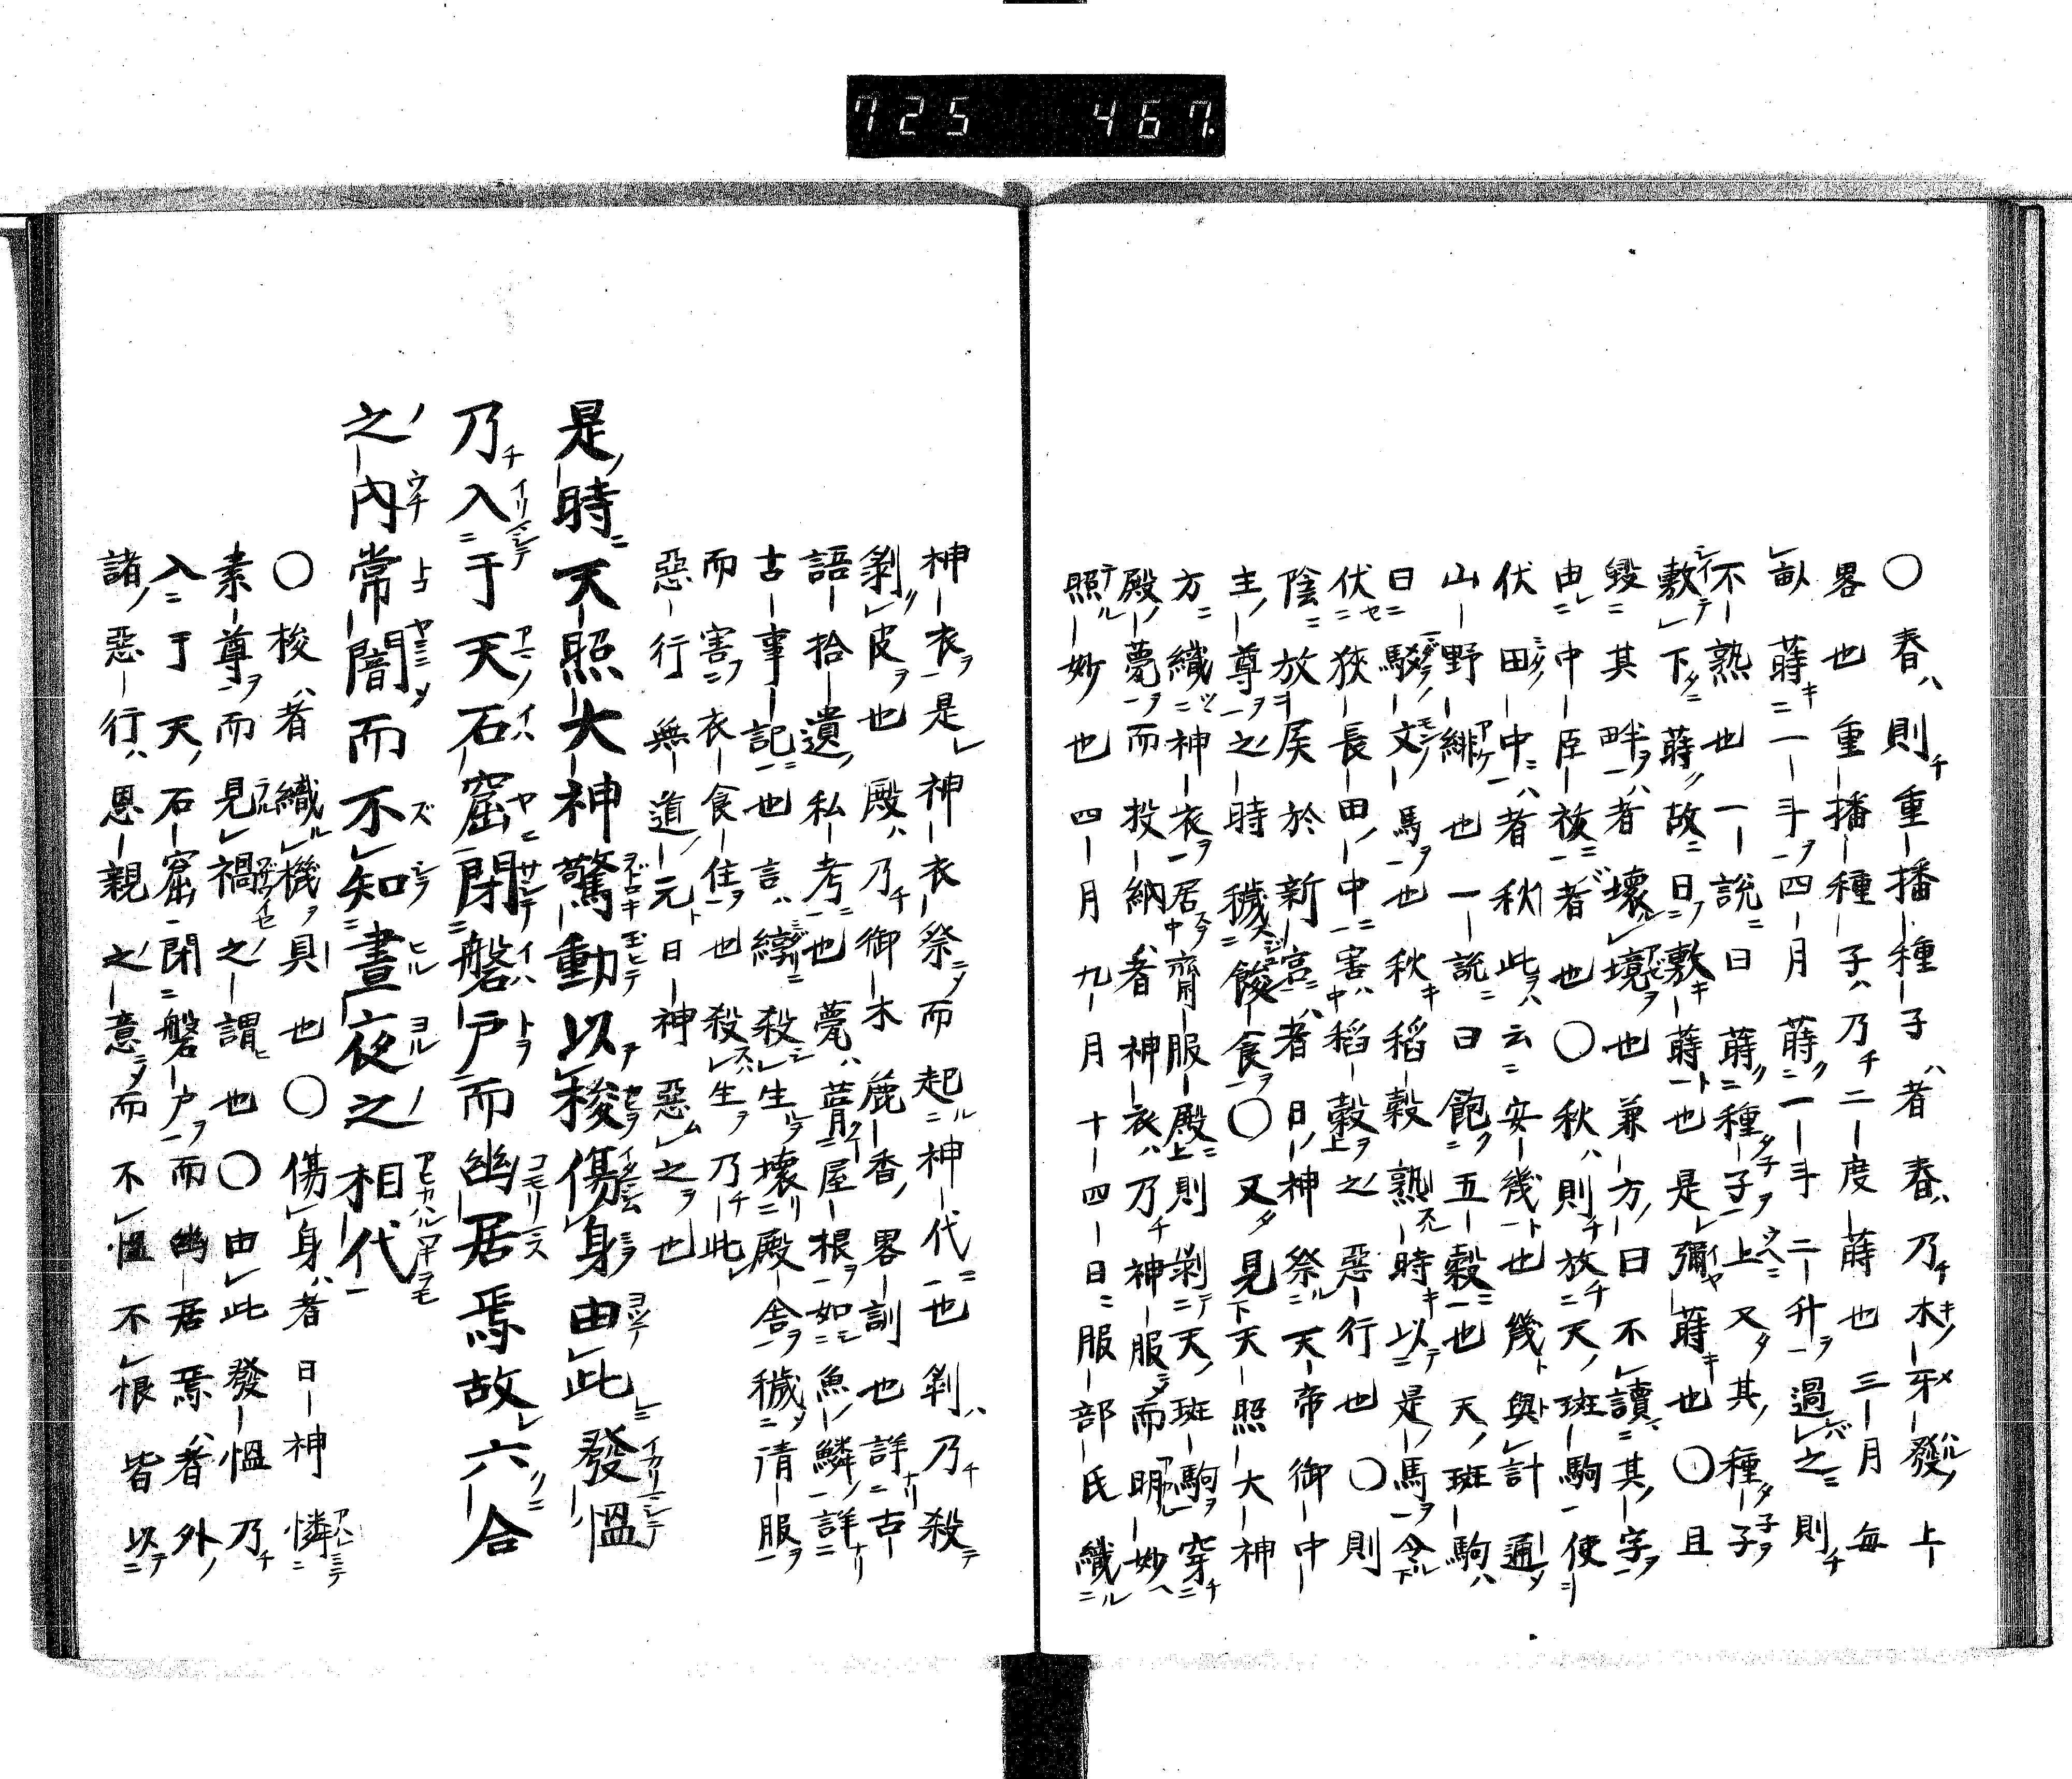 725 467.
〇春ハ則チ重播種子ハ者春ハ乃チ木ノ牙發ル上
畧也重播種子ハ乃チ二度蒔也三月每
畝蒔キ二一斗ヲ一四月蒔ク二一斗二升ヲ一過レバ之ニ則チ
不熟也一說ニ曰蒔ク二種子ヲ一上ヘニ又タ其ノ種子ヲ
敷テ下タニ蒔ク故ニ曰フ敷キ蒔ト也是レ彌蒔キ也〇且
毀ニ其畔ヲ一ハ者壞ル境ヲ也兼方ノ曰不讀其ノ字ヲ
由中臣祓ニ者也〇秋ハ則チ放チ天ノ斑駒使シ
伏田ノ中ニハ者秋此ヲハ云安幾ト也幾ト與計通タ
山野緋也一說ニ曰飽ク五穀ニ也天ノ斑駒ハ
曰駁文ノ馬ヲ也秋キ稻穀熟ス時キ以テ是ノ馬ヲ令ル
伏セ狹長田ノ中ニ害ハ稻穀ヲ之惡行也〇則
陰ニ放𡱁於新宮ニハ者日ノ神祭ル天帝御中
主ノ尊ヲ之時穢ス餕食ヲ〇又タ見天照大神
方ニ織ツ神衣ヲ居マ齋服殿ニ則剝テ天ノ斑駒ヲ穿チ
殿ノ甍ヲ而投納者神衣ハ乃チ神服シタ而明妙ハ
照ル妙也四月九月十四日ニ服部氏織ル
神衣ヲ是レ神衣祭ニシタ而起ル神代ニ也剝ハ乃チ殺テ
剝ク皮ヲ也殿ハ乃チ御木鹿香ノ畧訓也詳ナリ古
語拾遺ノ私考ニ也甍ハ葺屋根ヲ如シ魚ノ鱗ノ詳ナリ
古事記ニ也言ハ殺シ生ヲ壞リ殿舎ヲ穢タ清服ヲ
而害フ衣食住ヲ也殺ス生ヲ乃チ此レ
惡行無道ノ元ト日神惡ム之ヲ也
是ノ時ニ天照大神驚動以梭傷身由此發慍
乃チ入于天石窟閉磐戸而幽居焉故六合
之內常闇而不知晝夜之相代
〇梭ハ者織ル機ヲ具也〇傷身ハ者日神憐
素尊ヲ而見禍之謂ヒ也〇由此發慍乃チ
入于天ノ石窟ニ閉磐戸ヲ而幽居焉ハ者外ノ
諸ノ惡行ハ恩親之意ニシタ而不慍不恨皆以テ